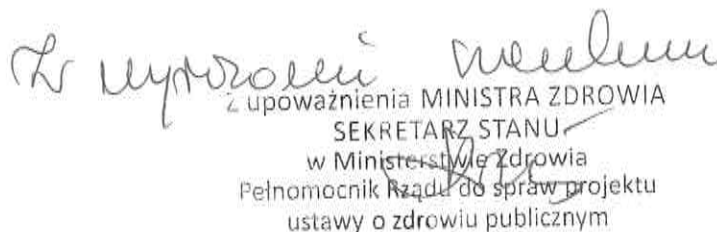 Z wyrazami
z upoważnienia MINISTRA ZDROWIA
SEKRETARZ STANU
w Ministerstwie Zdrowia
Pełnomocnik Rządu do spraw projektu
ustawy o zdrowiu publicznym